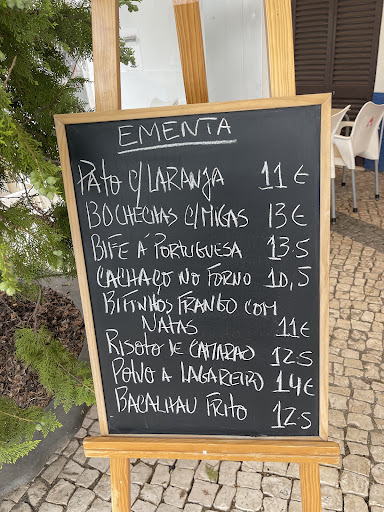 EMENTA
PATO C/ LARANJA 11€
BOCHECHAS C/MIGAS 13€
BIFE Á PORTUGUESA 13.5
CACHAÇO NO FORNO 10,5
BITINHOS FRANGO COM
NATAS 11€
RISOTO DE CAMARAO 12.5
POLVO A LAGAREIRO 14€
BACALHAU FRITO 12.5